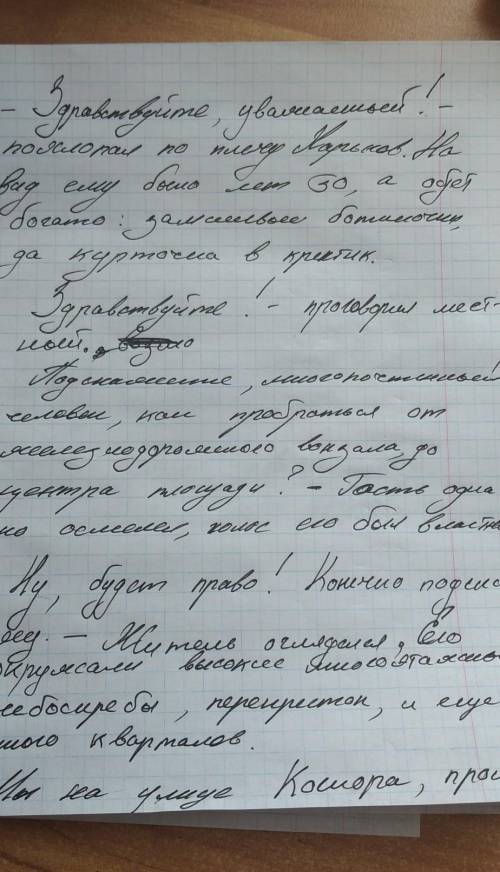 - Здравствуйте, уважаемый! -
похлопал по плечу Харьков. На
вид ему было лет 30, а одет
богато: замшевые ботиночки,
да курточка в крапик.
Здравствуйте! - проговорил мест-
ный.
Подскажите, многопочтиный
человек, как пробраться от
железнодорожного вокзала, до
центра площади? - Гость одна
но осмелел, голос его был властн
Ну, будет право! Конечно подска
жу. - Житель огляделся. Его
окружали высокие многоэтажно
небоскребы, перекристок, и еще
много кварталов.
Мы на улице Косиора, прош